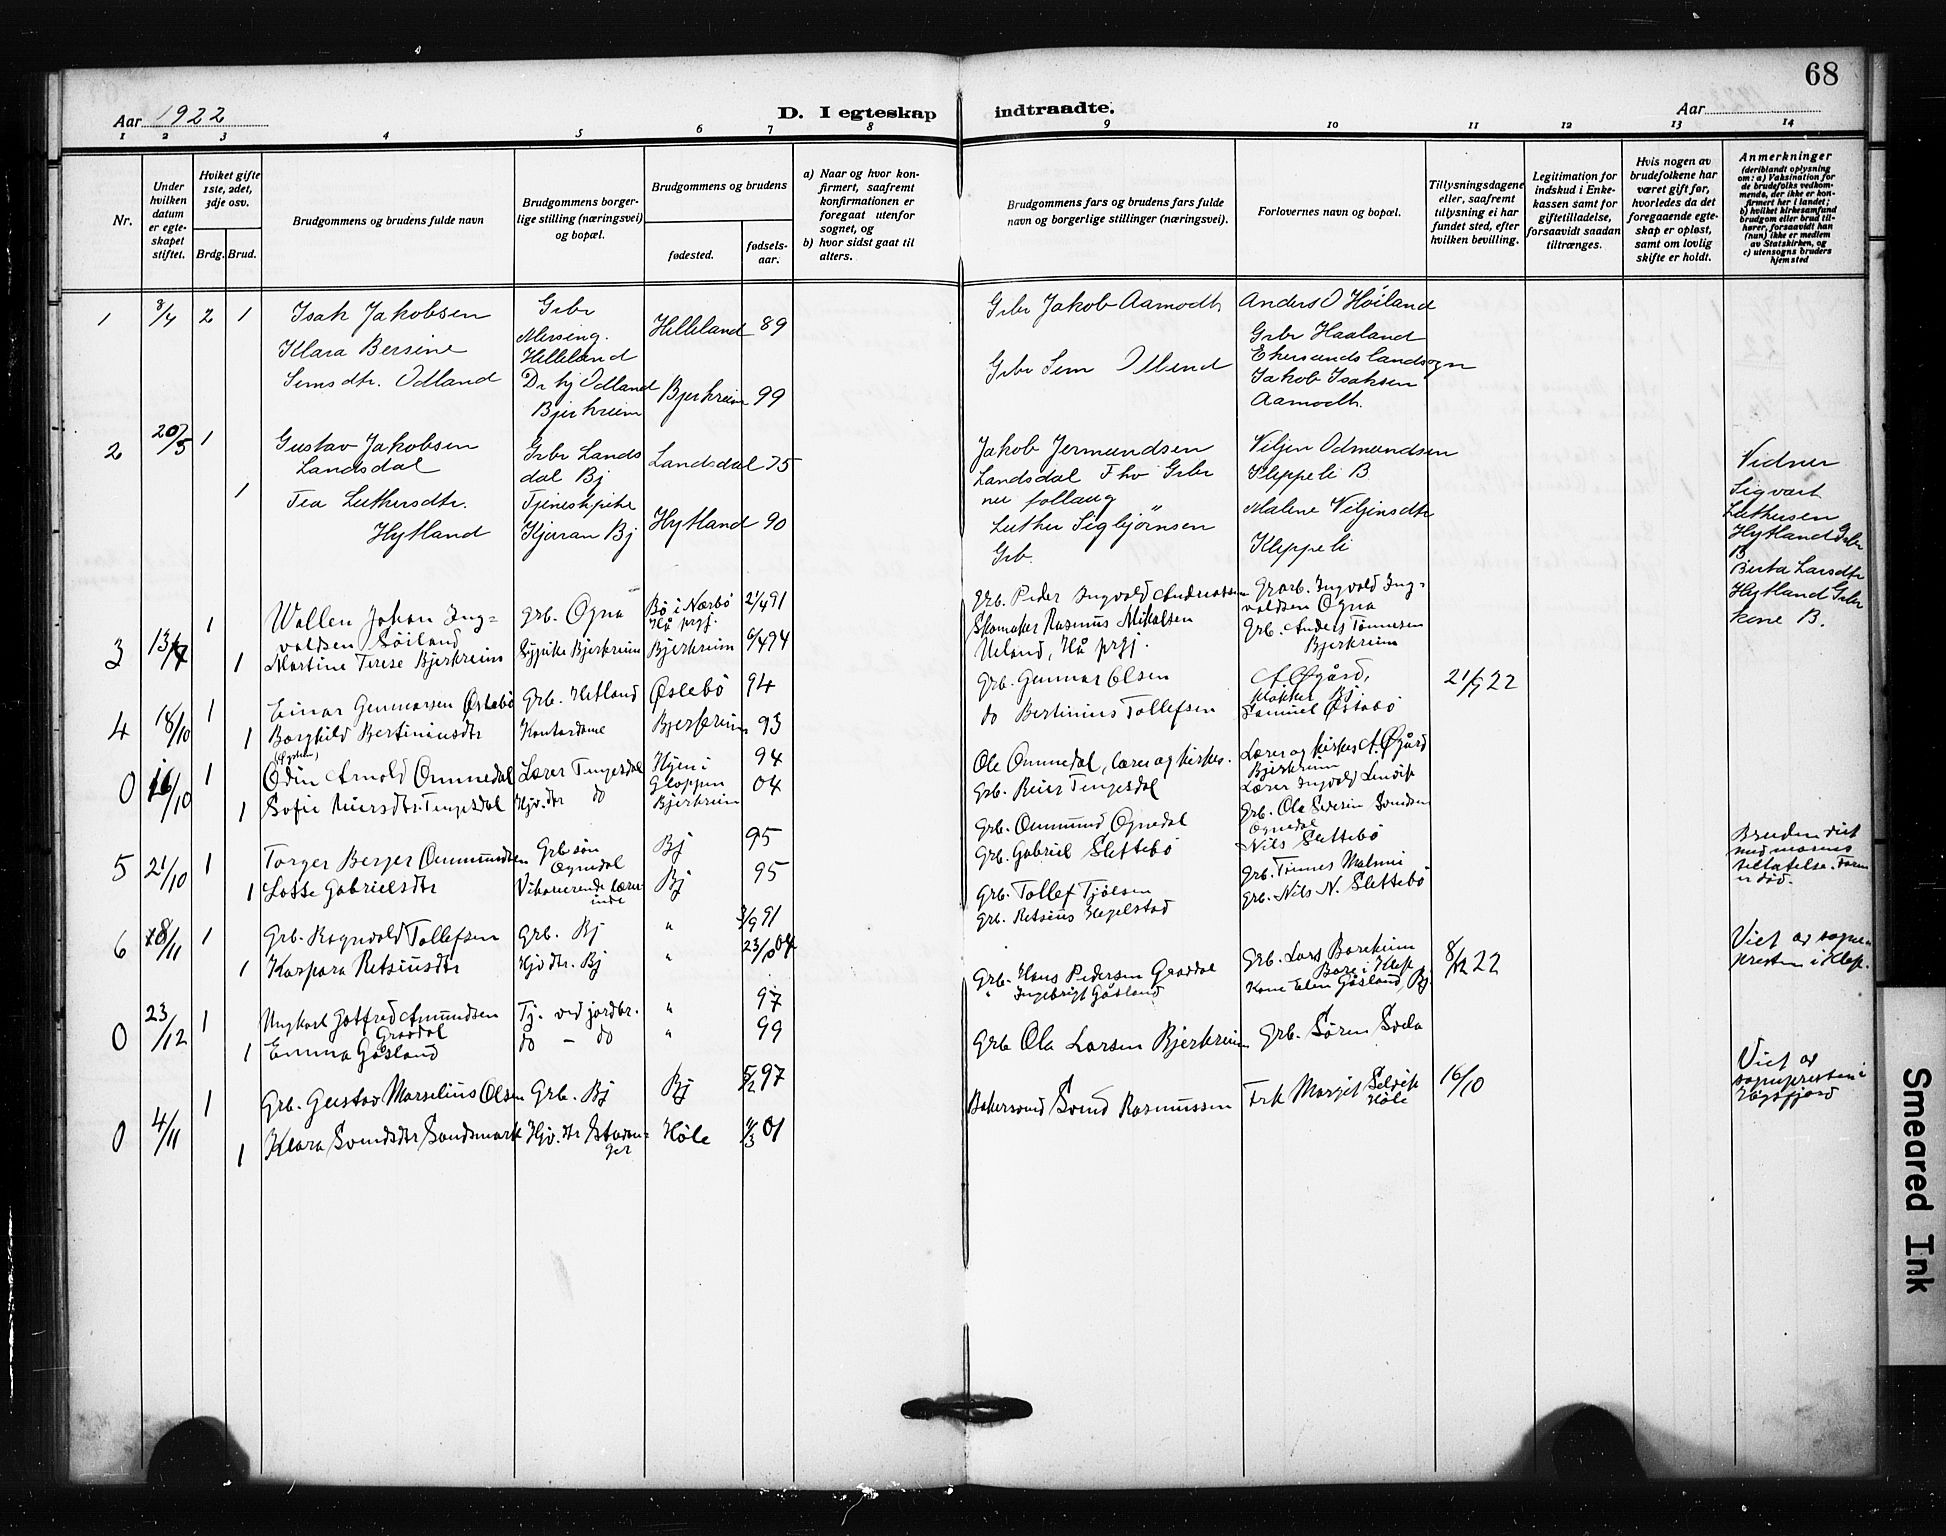 68
Aar 1922
D. I egteskap indtraadte.
Aar
1 2 3 4 5 6 7 8 9 10 11 12 13 14
Nr.
Under
hvilken
datum
er egte-
skapet
stiftet.
Hviket gifte
1ste, 2det,
3dje osv.
Brdg. Brud.
Brudgommens og brudens fulde navn
Brudgommens borger-
lige stilling (næringsvei)
og bopæl.
Brudgommens og brudens
fødested.
fødsels-
aar.
a) Naar og hvor kon-
firmert, saafremt
konfirmationen er
foregaat utenfor
sognet, og
b) hvor sidst gaat til
alters.
Brudgommens fars og brudens fars fulde
navn og borgerlige stillinger (næringsvei).
Forlovernes navn og bopæl.
Tillysningsdagene
eller, saafremt
tillysning ei har
fundet sted, efter
hvilken bevilling.
Legitimation for
indskud i Enke-
kassen samt for
giftetilladelse,
forsaavidt saadan
tiltrænges.
Hvis nogen av
brudefolkene har
været gift før,
hvorledes da det
foregaaende egte-
skap er opløst,
samt om lovlig
skifte er holdt.
Anmerkninger
(deriblandt oplysning
om: a) Vaksination for
de brudefolks vedkom-
mende, der ikke er kon-
firmert her i landet;
b) hvilket kirkesamfund
brudgom eller brud til-
hører, forsaavidt han
(hun) ikke er medlem
av Statskirken, og
c) utensogns bruders
hjemsted
1 8/4 2 1 Isak Jakobsen
Klara Bersine
Semsdtr. Odland
Grbr
Helleland
Odland
Bjerkreim
Helleland 89
Bjerkreim 99
Grbr Jakob Aamodt
Grbr Sem
Anders O Høiland
Grbr Haaland
Ekersunds landsogn
Jakob Isaksen
Aamodt.
2 20/5 1 Gustav Jakobsen
Landsdal
1 Tea Luthersdtr.
Hytland
Grbr Lands
dal Bj
Kjøran Bj
Landsdal 75
Hytland 90
Jakob Jermundsen
Landsdal Fhv Grbr
nu follaug
Luther Sigbjørnsen
Grb.
Viljen Odmundsen
Kleppeli B
Malene Viljensdtr
Kleppeli
Vidner
Sigvart
Luthersen
Hytland Grbr
B
Berta Larsdtr
Hytland Grbr
kone B.
3 1 Wallen Johan Ing-
valdsen Søiland
1 Martine Terese Bjerkreim
Grb. Ogna
Sypike Bjerkreim
Bø i Nærbø
Hå prgj.
Bjerkreim
2/4 91
6/4 94
Grb. Peder Ingvald Andreassen
Skomaker Rasmus Mikalsen
Ueland, Hå prgj.
Grarb. Ingvald Ing-
valdsen Ogna
Grb. Anders Tønnesen
Bjerkreim
4 18/10 1 Einar Gunnarsen Østebø
1 Borghild Bertiniusdtr
Grb. Hetland
Kontordame
Østebø 94
Bjerkreim 93
Grb. Gunnar Olsen
do Bertinius Tollefsen
A. Øgård,
klokker Bj.
Samuel Østebø
22
0 16/10 1 Odin Arnold Ommedal
1 Sofie Reiersdtr. Tengesdal
Lærer Tengesdal
Hjv. dtr do
Hjem i
Gloppen
Bjerkreim
94
04
Ole Ommedal, lærer og kirkes.
Grb. Reier Tengesdal
Lærer og kirkes A. Øgård
Bjerkreim
Lærer Ingvald
5 21/10 1 Torger Berger Ommundsen
1 Lotte Gabrielsdtr
Grbsøn
Ognedal
Vikarierende lærer-
inde
Bj 95
Bj 95
Grb. Ommund Ognedal
Grb. Gabriel Slettebø
Grb. Ole Severin Svendsen
Ognedal
Nils Slettebø
Bruden viet
med morens
tillatelse. Faren
er død.
6 18/11 1 Grb. Ragnvald Tollefsen
1 Kaspara Retsiusdtr
Grb. Bj
Hjv dtr. Bj
" 3/9 91
" 23/10 04
Grb. Tollef Tjølsen
Grb. Retsius Hegelstad
Grb. Tønnes Malmei
Grb. Nils N. Slettebø
0 23/12 1 Ungkarl Gotfred Amundsen
Grøddal
1 Emma Gåsland
Tj. ved jordbr.
do - do
" 97
" 99
Grb. Hans Pedersen Grøddal
" Ingebrigt Gåsland
Grb. Lars Boreheim
Bore i Klep
Kone Elen Gåsland, Bj.
8/12 22
Viet av sogne-
presten i Klep.
0 4/11 1 Grb. Gustav Marselius Olsen
1 Klara Svendsdtr Sandsmark
Grb. Bj
Hjv. dtr Stavan-
ger
Bj 5/2 97
Høle 11/3 01
Grb Ola Larsen Bjerkreim
Bakersvend Svend Rasmussen
Grb. Søren Svela
Frk Margit Selvik
Høle
16/10
Viet av
sognepresten i
Høgsfjord
Smeared Ink